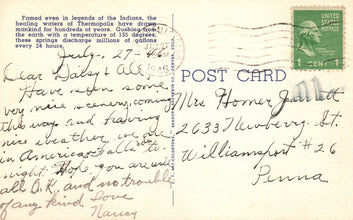 Famed even in legends of the Indians, the
healing waters of Thermopolis have drawn
mankind for hundreds of years. Gushing from
the earth with a temperature of 135 degrees,
these springs discharge millions of gallons
every 24 hours.
July - 29 -
Dear Daisy & All:
Have seen some
very nice scenery coming
this way and having
nice weather, we are
in American Falls to-
night. Hope you are well
all O.K. and no trouble
of any kind Love
Nancy
POST CARD
UNITED STATES
POSTAGE
1 CENT 1
Mrs Homer Jarrett
2633 Newberry St.
Williamsport #26
Penna.